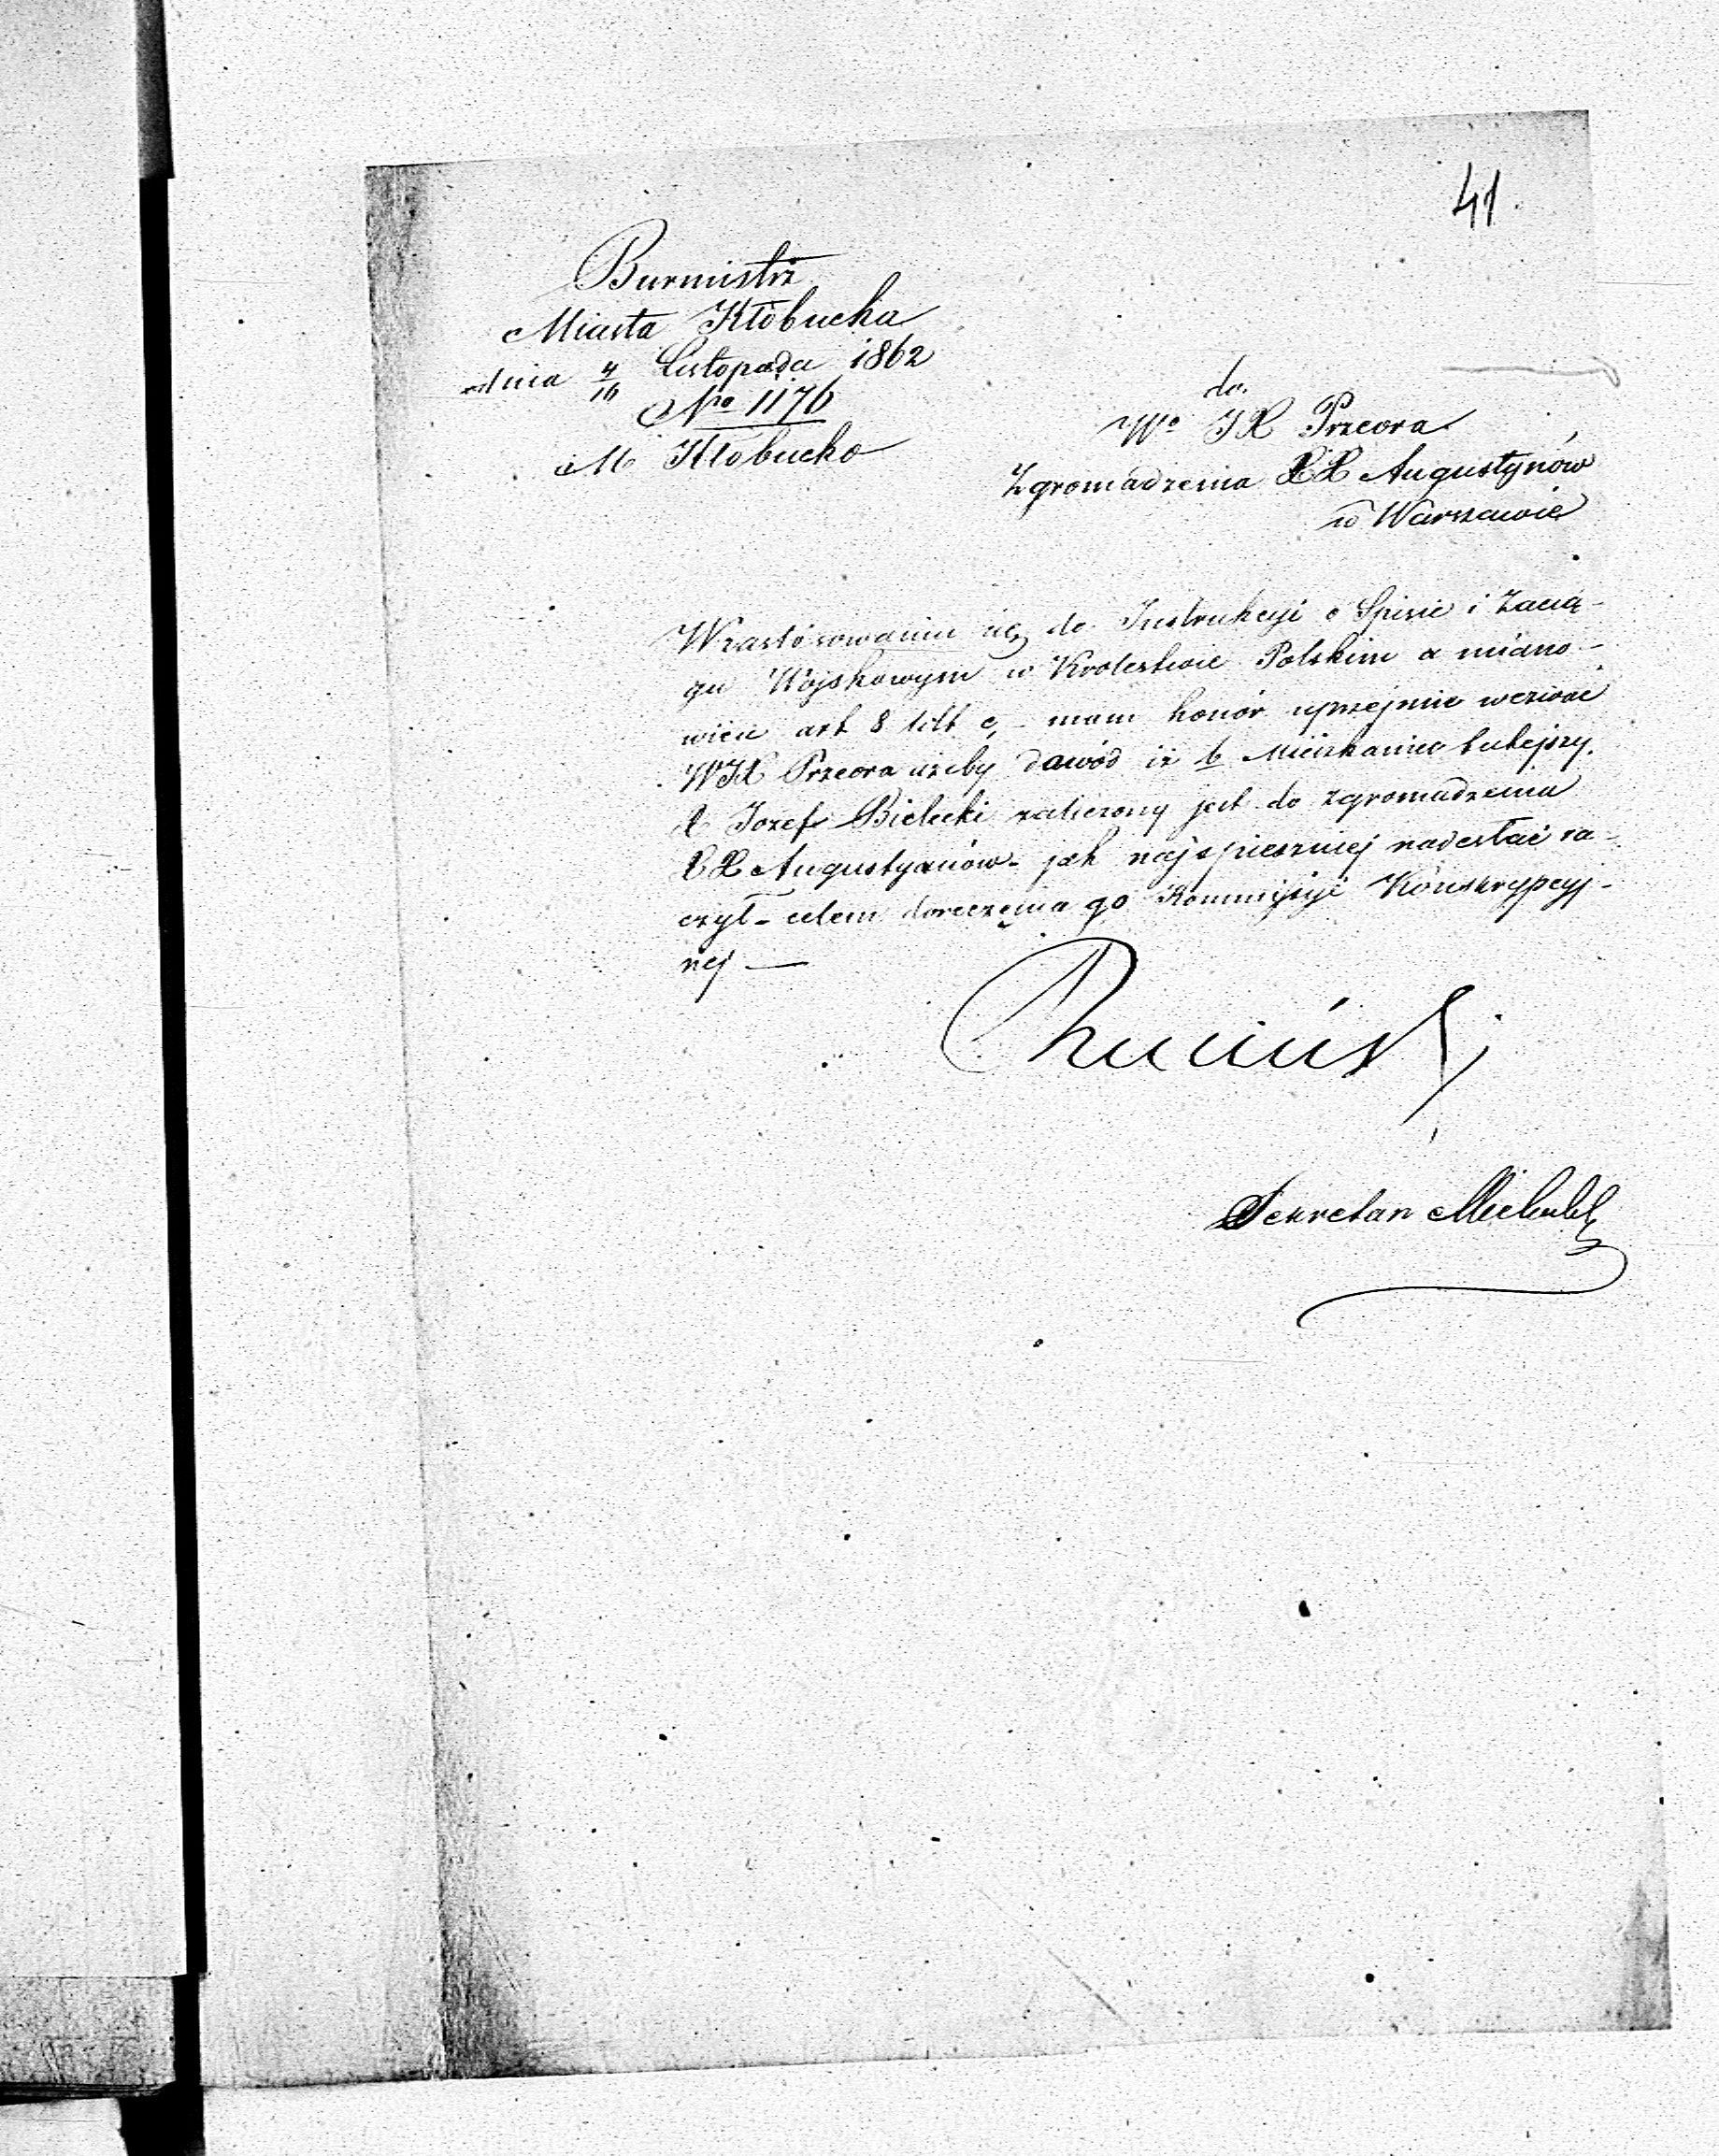 41.
Burmistrz
Miasta Kłobucka
dnia 4/16 Listopada 1862
No 1176
M Kłobucko
do.
Wo JX Przeora
Zgromadzenia XX Augustynów
w Warszawie
W zastósowaniu się do Instrukcyi o Spisie i Zacią-
gu Wojskowym w Krolestwie Polskim a miano-
wicie art 8 litt c, mam honor uprzejmie wezwać
WJX Przeora ażeby dowód iż b Mieszkaniec tutejszy.
X Jozef Bielecki zaliczony jest do zgromadzenia
XX Augustyanów- jak najspieszniej nadesłać ra-
czył- celem doręczenia go Kommissyi Konskrypcyj-
nej —
Sekretarz